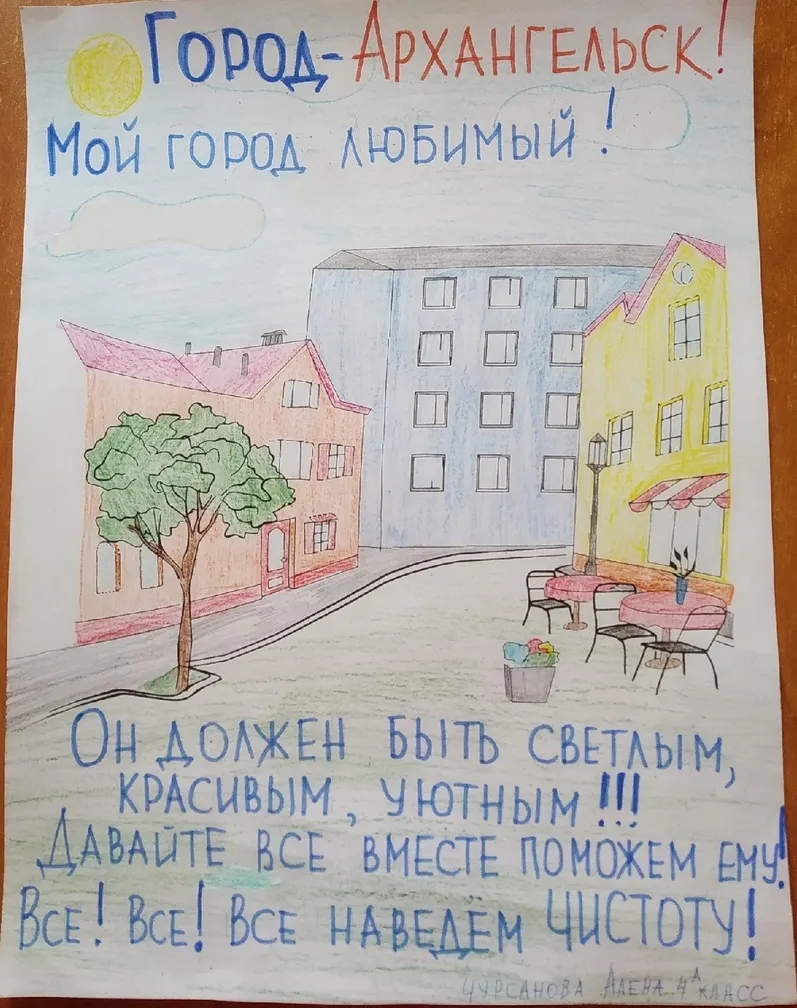 Город-Архангельск!
Мой город любимый!
Он должен быть светлым,
красивым, уютным!!!
Давайте все вместе поможем ему!
Все! Все! Все наведём чистоту!
Чурсанова Алена 4А класс